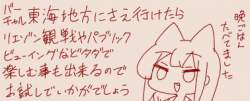 バーチャル東海地方にさえ行けたら
リエゾン観戦やパブリック
ビューイングなどタダで
楽しむ事も出来るので
お試していかがでしょう
晩ごはん
たべてました